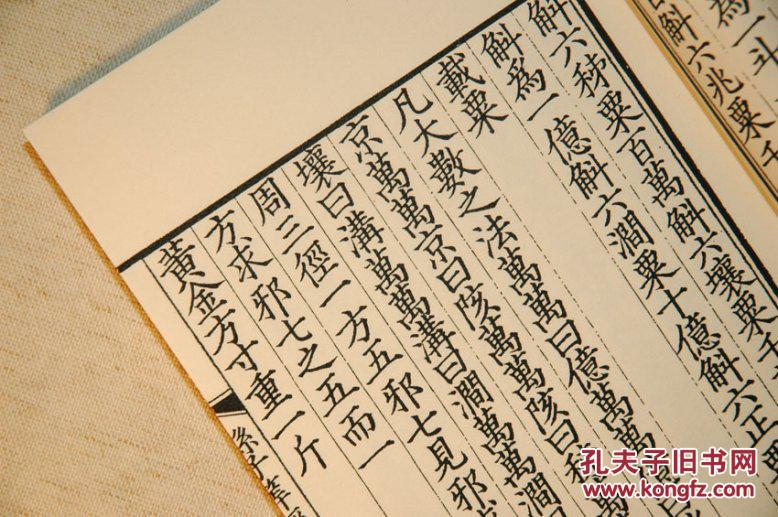 為一斗
斛六兆粟千
斛六秭粟百萬斛六壤粟千
斛為一億斛六澗粟十億斛六正
載粟
凡大數之法萬萬曰億萬萬
京萬萬京曰陔萬萬陔曰秭
壤曰溝萬萬溝曰澗萬萬澗
周三徑一方五邪七見邪
方求邪七之五而一
黃金方寸重一斤
孫子筭
孔夫子旧书网
www.kongfz.com